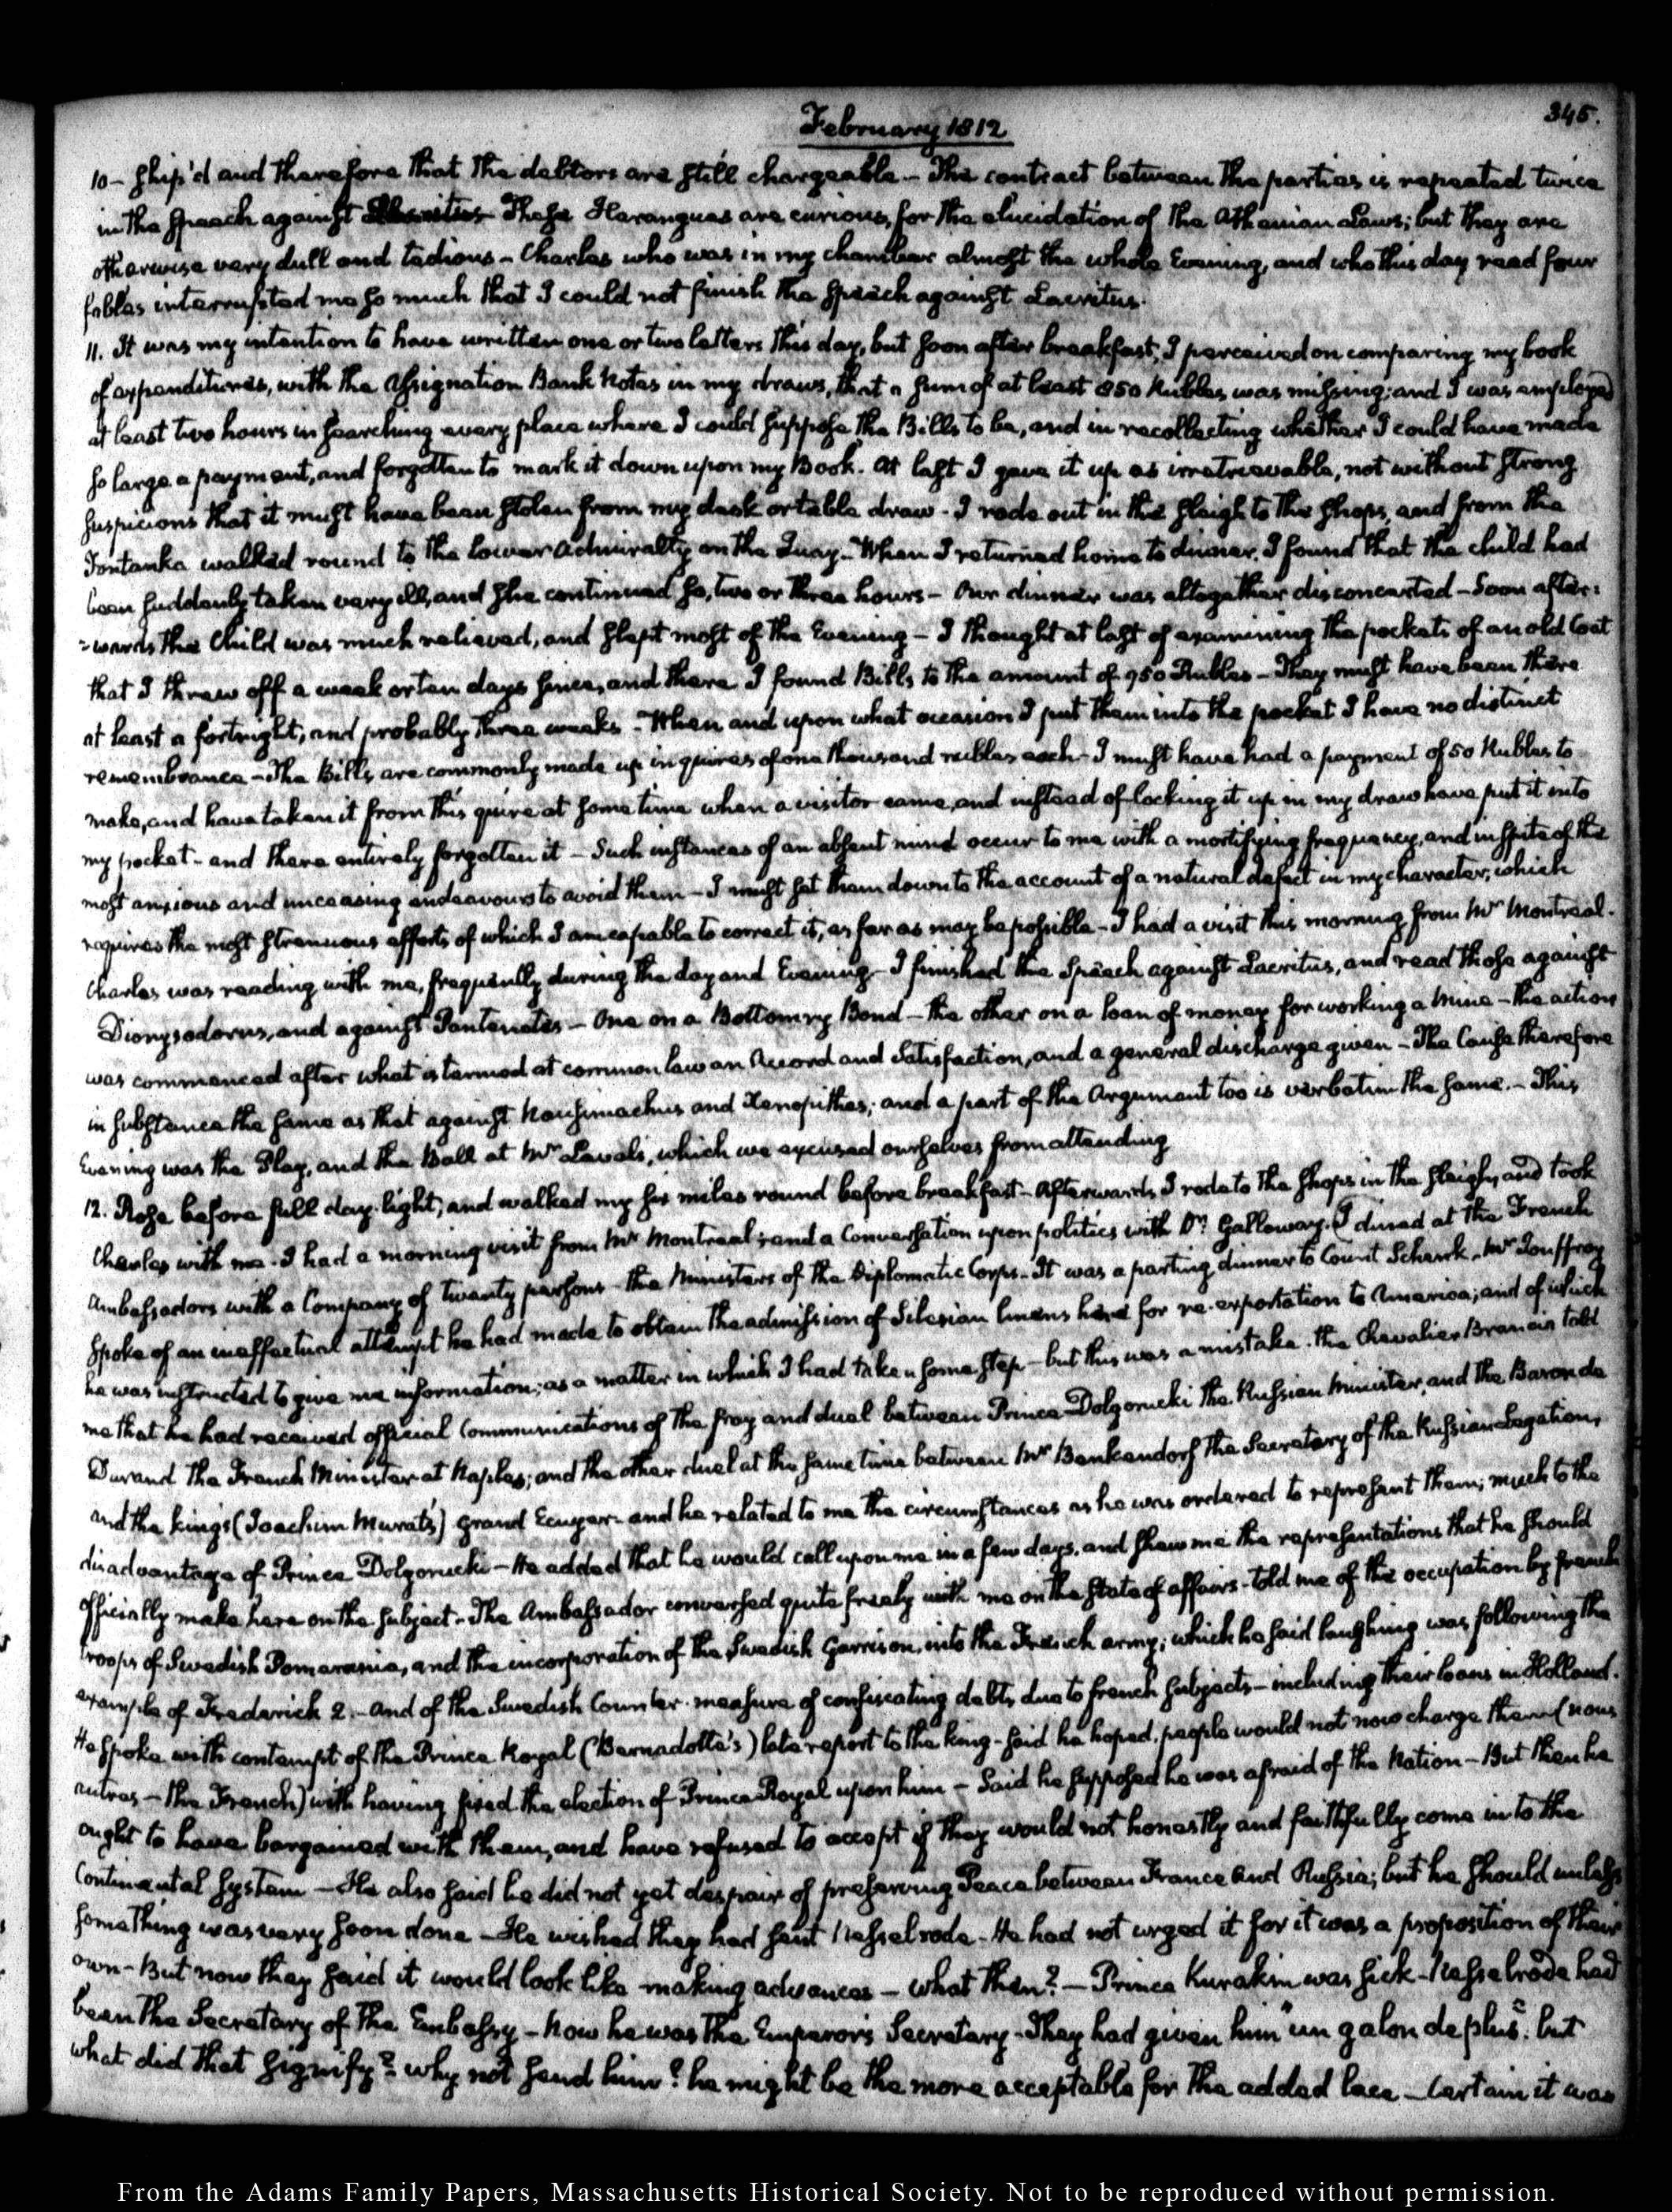 February 1812
345.
10 - ship'd and therefore that the debtors are still chargeable - The contract between the parties is repeated twice
in the Speech against These Harangues are curious, for the elucidation of the Athenian Laws; but they are
otherwise very dull and tedious - Charles who was in my chamber almost the whole Evening, and who this day read four
fables interrupted me so much that I could not finish the Speech against Lacritus.
11. It was my intention to have written one or two letters this day, but soon after breakfast, I perceived on comparing my book
of expenditures, with the Assignation Bank Notes in my draws, that a sum of at least 850 Rubles was missing; and I was employed
at least two hours in searching every place where I could suppose the Bills to be, and in recollecting whether I could have made
so large a payment, and forgotten to mark it down upon my Book. At last I gave it up as irretrievable, not without strong
suspicions that it must have been stolen from my desk or table draw - I rode out in the sleigh to the shops, and from the
Fontanka walked round to the lower Admiralty on the Quay - When I returned home to dinner, I found that the child had
been suddenly taken very ill, and she continued so, two or three hours - Our dinner was altogether disconcerted - Soon after:
=wards the Child was much relieved, and slept most of the Evening - I thought at last of examining the pockets of an old Coat
that I threw off a week or ten days since, and there I found Bills to the amount of 950 Rubles - They must have been there
at least a fortnight, and probably three weeks - When and upon what occasion I put them into the pocket I have no distinct
remembrance - The Bills are commonly made up in quires of one thousand rubles each - I must have had a payment of 50 Rubles to
make, and have taken it from this quire at some time when a visitor came, and instead of locking it up in my draw have put it into
my pocket - and there entirely forgotten it - Such instances of an absent mind occur to me with a mortifying frequency, and in spite of the
most anxious and unceasing endeavours to avoid them - I must set them down to the account of a natural defect in my character, which
requires the most strenuous efforts of which I am capable to correct it, as far as may be possible - I had a visit this morning from Mr Montreal.
Charles was reading with me, frequently during the day and Evening - I finished the Speech against Lacritus, and read those against
Dionysodorus, and against Pantenates - One on a Bottomry Bond - the other on a loan of money for working a Mine - the action
was commenced after what is termed at common law an Accord and Satisfaction, and a general discharge given - The Cause therefore
in substance the same as that against Nausimachus and Xenopithes; and a part of the Argument too is verbatim the same. - This
Evening was the Play, and the Ball at Mr Laval's, which we excused ourselves from attending
12. Rose before full day-light, and walked my six miles round before breakfast - Afterwards I rode to the shops in the sleigh, and took
Charles with me. I had a morning visit from Mr Montreal; and a Conversation upon politics with Dr Galloway. I dined at the French
Ambassadors with a Company of twenty persons - the Ministers of the Diplomatic Corps - It was a parting dinner to Count Schenk. Mr Jouffroy
spoke of an ineffectual attempt he had made to obtain the admission of Silesian linens here for re-exportation to America; and of which
he was instructed to give me information; as a matter in which I had taken some step - but this was a mistake. the Chevalier Brancia told
me that he had received official Communications of the fray and duel between Prince Dolgorucki the Russian Minister, and the Baron de
Durand the French Minister at Naples; and the other duel at the same time between Mr Benkendorf the Secretary of the Russian Legation,
and the king's (Joachim Murat's) grand Ecuyer - and he related to me the circumstances as he was ordered to represent them; much to the
disadvantage of Prince Dolgorucki - He added that he would call upon me in a few days, and shew me the representations that he should
officially make here on the subject - The Ambassador conversed quite freely with me on the State of affairs - told me of the occupation by french
troops of Swedish Pomerania, and the incorporation of the Swedish Garrison, into the French army; which he said laughing was following the
example of Frederick 2. - and of the Swedish Counter-measure of confiscating debts due to french subjects - including their loans in Holland.
He spoke with contempt of the Prince Royal (Bernadotte's) late report to the king - said he hoped people would not now charge them (nous
autres - the French) with having fixed the election of Prince Royal upon him - Said he supposed he was afraid of the Nation - But then he
ought to have bargained with them, and have refused to accept if they would not honestly and faithfully come into the
Continental System - He also said he did not yet despair of preserving Peace between France and Russia; but he should unless
something was very soon done - He wished they had sent Nesselrode - He had not urged it for it was a proposition of their
own - But now they said it would look like making advances - what then? - Prince Kurakin was sick - Nesselrode had
been the Secretary of the Embassy - Now he was the Emperor's Secretary - They had given him "un galon de plus". but
what did that signify? why not send him? he might be the more acceptable for the added lace - Certain it was
From the Adams Family Papers, Massachusetts Historical Society. Not to be reproduced without permission.